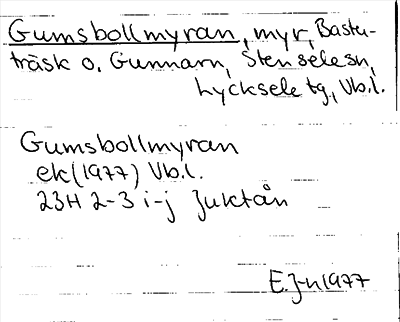 Gumsbollmyran, myr, Bastu-
träsk o. Gunnarn, Stenselesn,
Lycksele tg., Vb.l.
Gumsbollmyran
ek (1977) Vb.l.
23H 2-3 i-j Juktån
E.J-n 1977